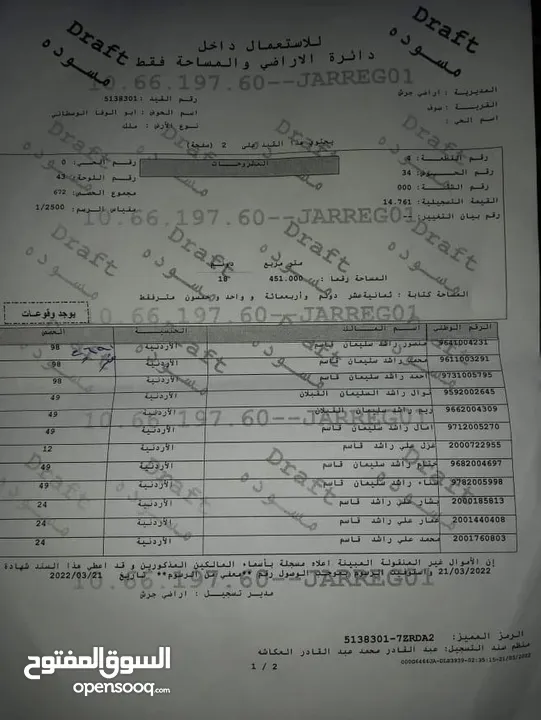 للاستعمال داخل
دائرة الاراضي والمساحة فقط
Draft مسوده
10.66.197.60--JARREG01
المديرية : اراضي جرش
القرية : سوف
اسم الحي :
رقم القيد : 5138301
اسم الحوض : ابو الوفا الوسطاني
نوع الأرض : ملك
يحتوي هذا القيد على 2 (صفحة)
المشروحات
رقم القطعة : 4
رقم الحوض : 34
رقم الشقة : 000
القيمة التسجيلية : 14.761
رقم بيان التغيير : --
رقم الحي : 0
رقم اللوحة : 43
مجموع الحصص : 672
مقياس الرسم : 1/2500
متر مربع دونم
المساحة رقما : 451.000 18
المساحة كتابة : ثمانية عشر دونم وأربعمائة و واحد وخمسون متر فقط
يوجد وقوعات
الرقم الوطني اسم المالك الجنسية الحصص
9641004231 منصور راشد سليمان قاسم الأردنية 98
9611003291 محمد راشد سليمان قاسم الأردنية 98
9731005795 احمد راشد سليمان قاسم الأردنية 98
9592002645 نوال راشد السليمان القبلان الأردنية 49
9662004309 ريم راشد سليمان القبلان الأردنية 49
9712005270 امال راشد سليمان قاسم الأردنية 49
2000722955 غزل علي راشد قاسم الأردنية 12
9682004697 ختام راشد سليمان قاسم الأردنية 49
9782005998 هناء راشد سليمان قاسم الأردنية 49
2000185813 بشار علي راشد قاسم الأردنية 24
2001440408 عمار علي راشد قاسم الأردنية 24
2001760803 محمد علي راشد قاسم الأردنية 24
إن الأموال غير المنقولة المبينة اعلاه مسجلة بأسماء المالكين المذكورين و قد اعطي هذا السند شهادة
21/03/2022 واستوفيت الرسوم بموجب الوصول رقم **معفي من الرسوم** تاريخ 2022/03/21
مدير تسجيل : اراضي جرش
الرمز المميز: 5138301-7ZRDA2
منظم سند التسجيل: عبد القادر محمد عبد القادر العكاشه
1 / 2
السوق المفتوح
opensooq.com